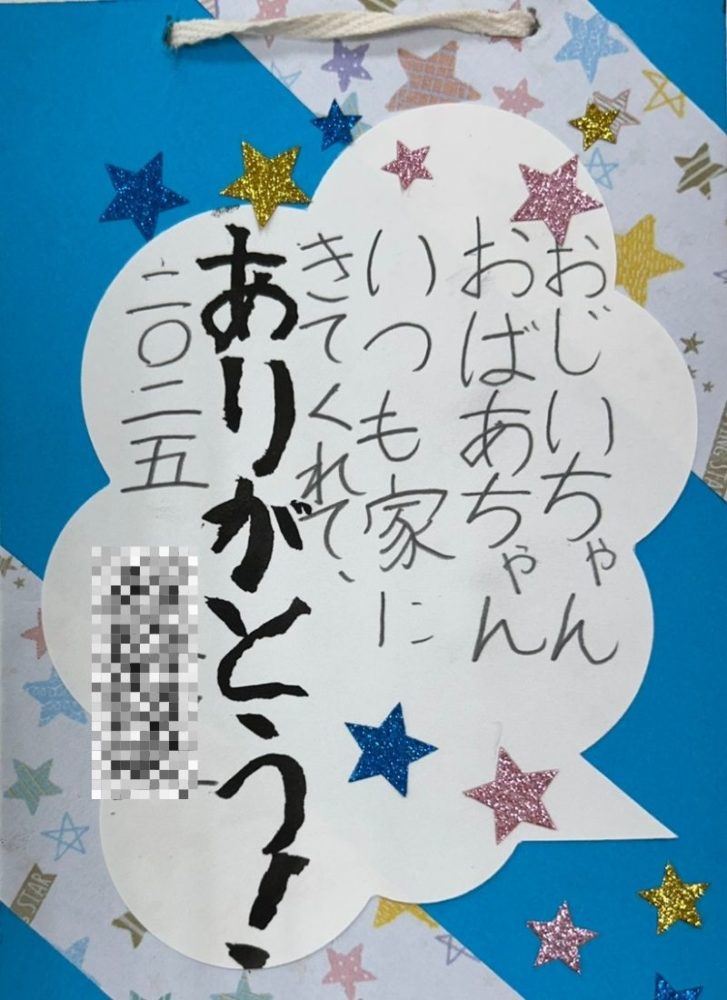 おじいちゃん
おばあちゃん
いつも家に
きてくれて、
ありがとう!
二〇二五
STAR